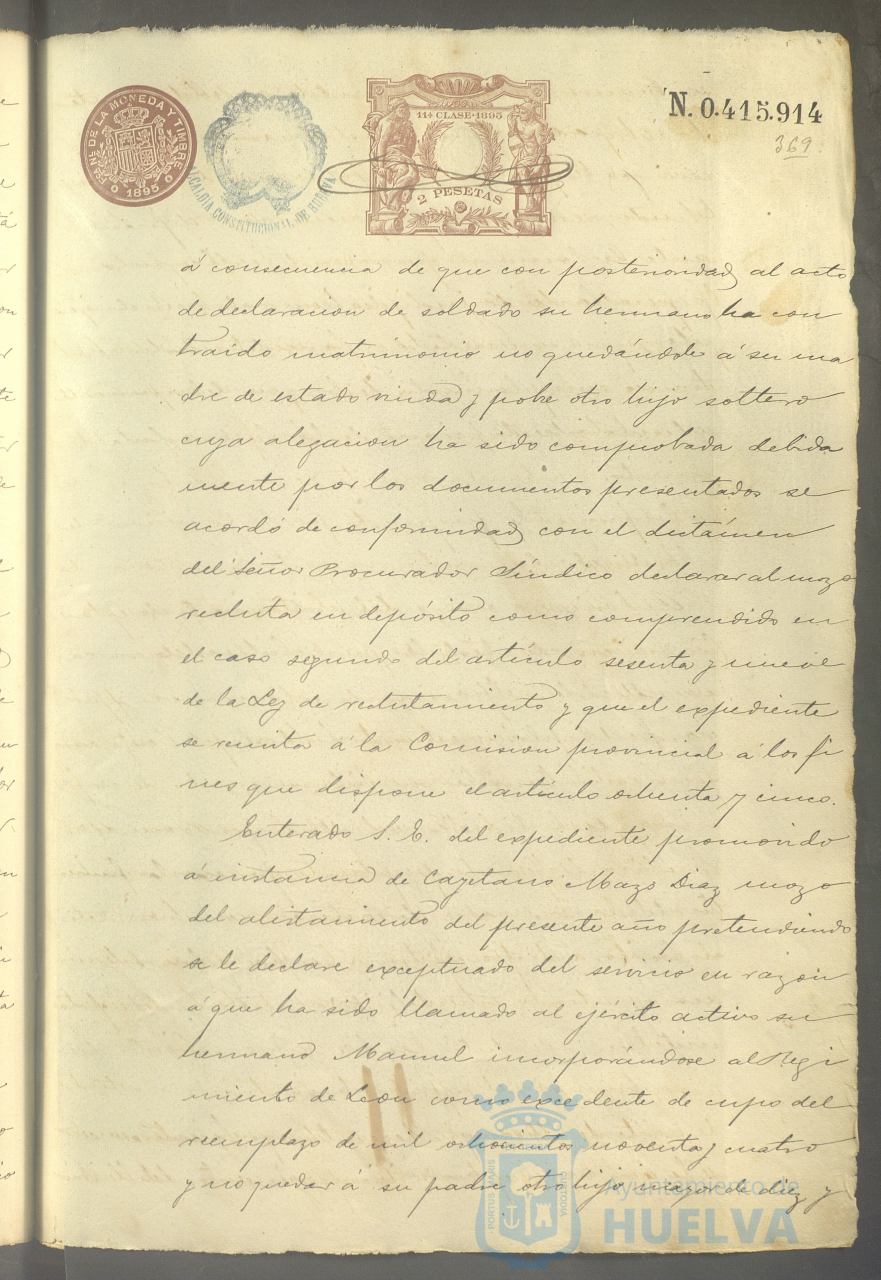 FAB. NAL. DE LA MONEDA Y TIMBRE
1895
ALCALDÍA CONSTITUCIONAL DE HUELVA
11ª CLASE·1895
2 PESETAS
N. 0.415.914
369
á consecuencia de que con posterioridad al acto
de declaracion de soldado su hermano ha con
traido matrimonio no quedándole á su ma
dre de estado viuda y pobre otro hijo soltero
cuya alegacion ha sido comprobada debida
mente por los documentos presentados se
acordó de conformidad con el dictámen
del Señor Procurador Síndico declarar al mozo
recluta en depósito como comprendido en
el caso segundo del artículo sesenta y nueve
de la Ley de reclutamiento y que el expediente
se remita á la Comision provincial á los fi
nes que dispone el artículo ochenta y cinco.
Enterado S. E. del expediente promovido
á instancia de Cayetano Mazo Diaz mozo
del alistamiento del presente año pretendiendo
se le declare exceptuado del servicio en razon
á que ha sido llamado al ejército activo su
hermano Manuel incorporándose al Regi
miento de Leon como excedente de cupo del
reemplazo de mil ochocientos noventa y cuatro
y no quedar á su padre otro hijo mayor de diez y
PORTUS MARIS ET TERRAE CUSTODIA
Ayuntamiento de
HUELVA